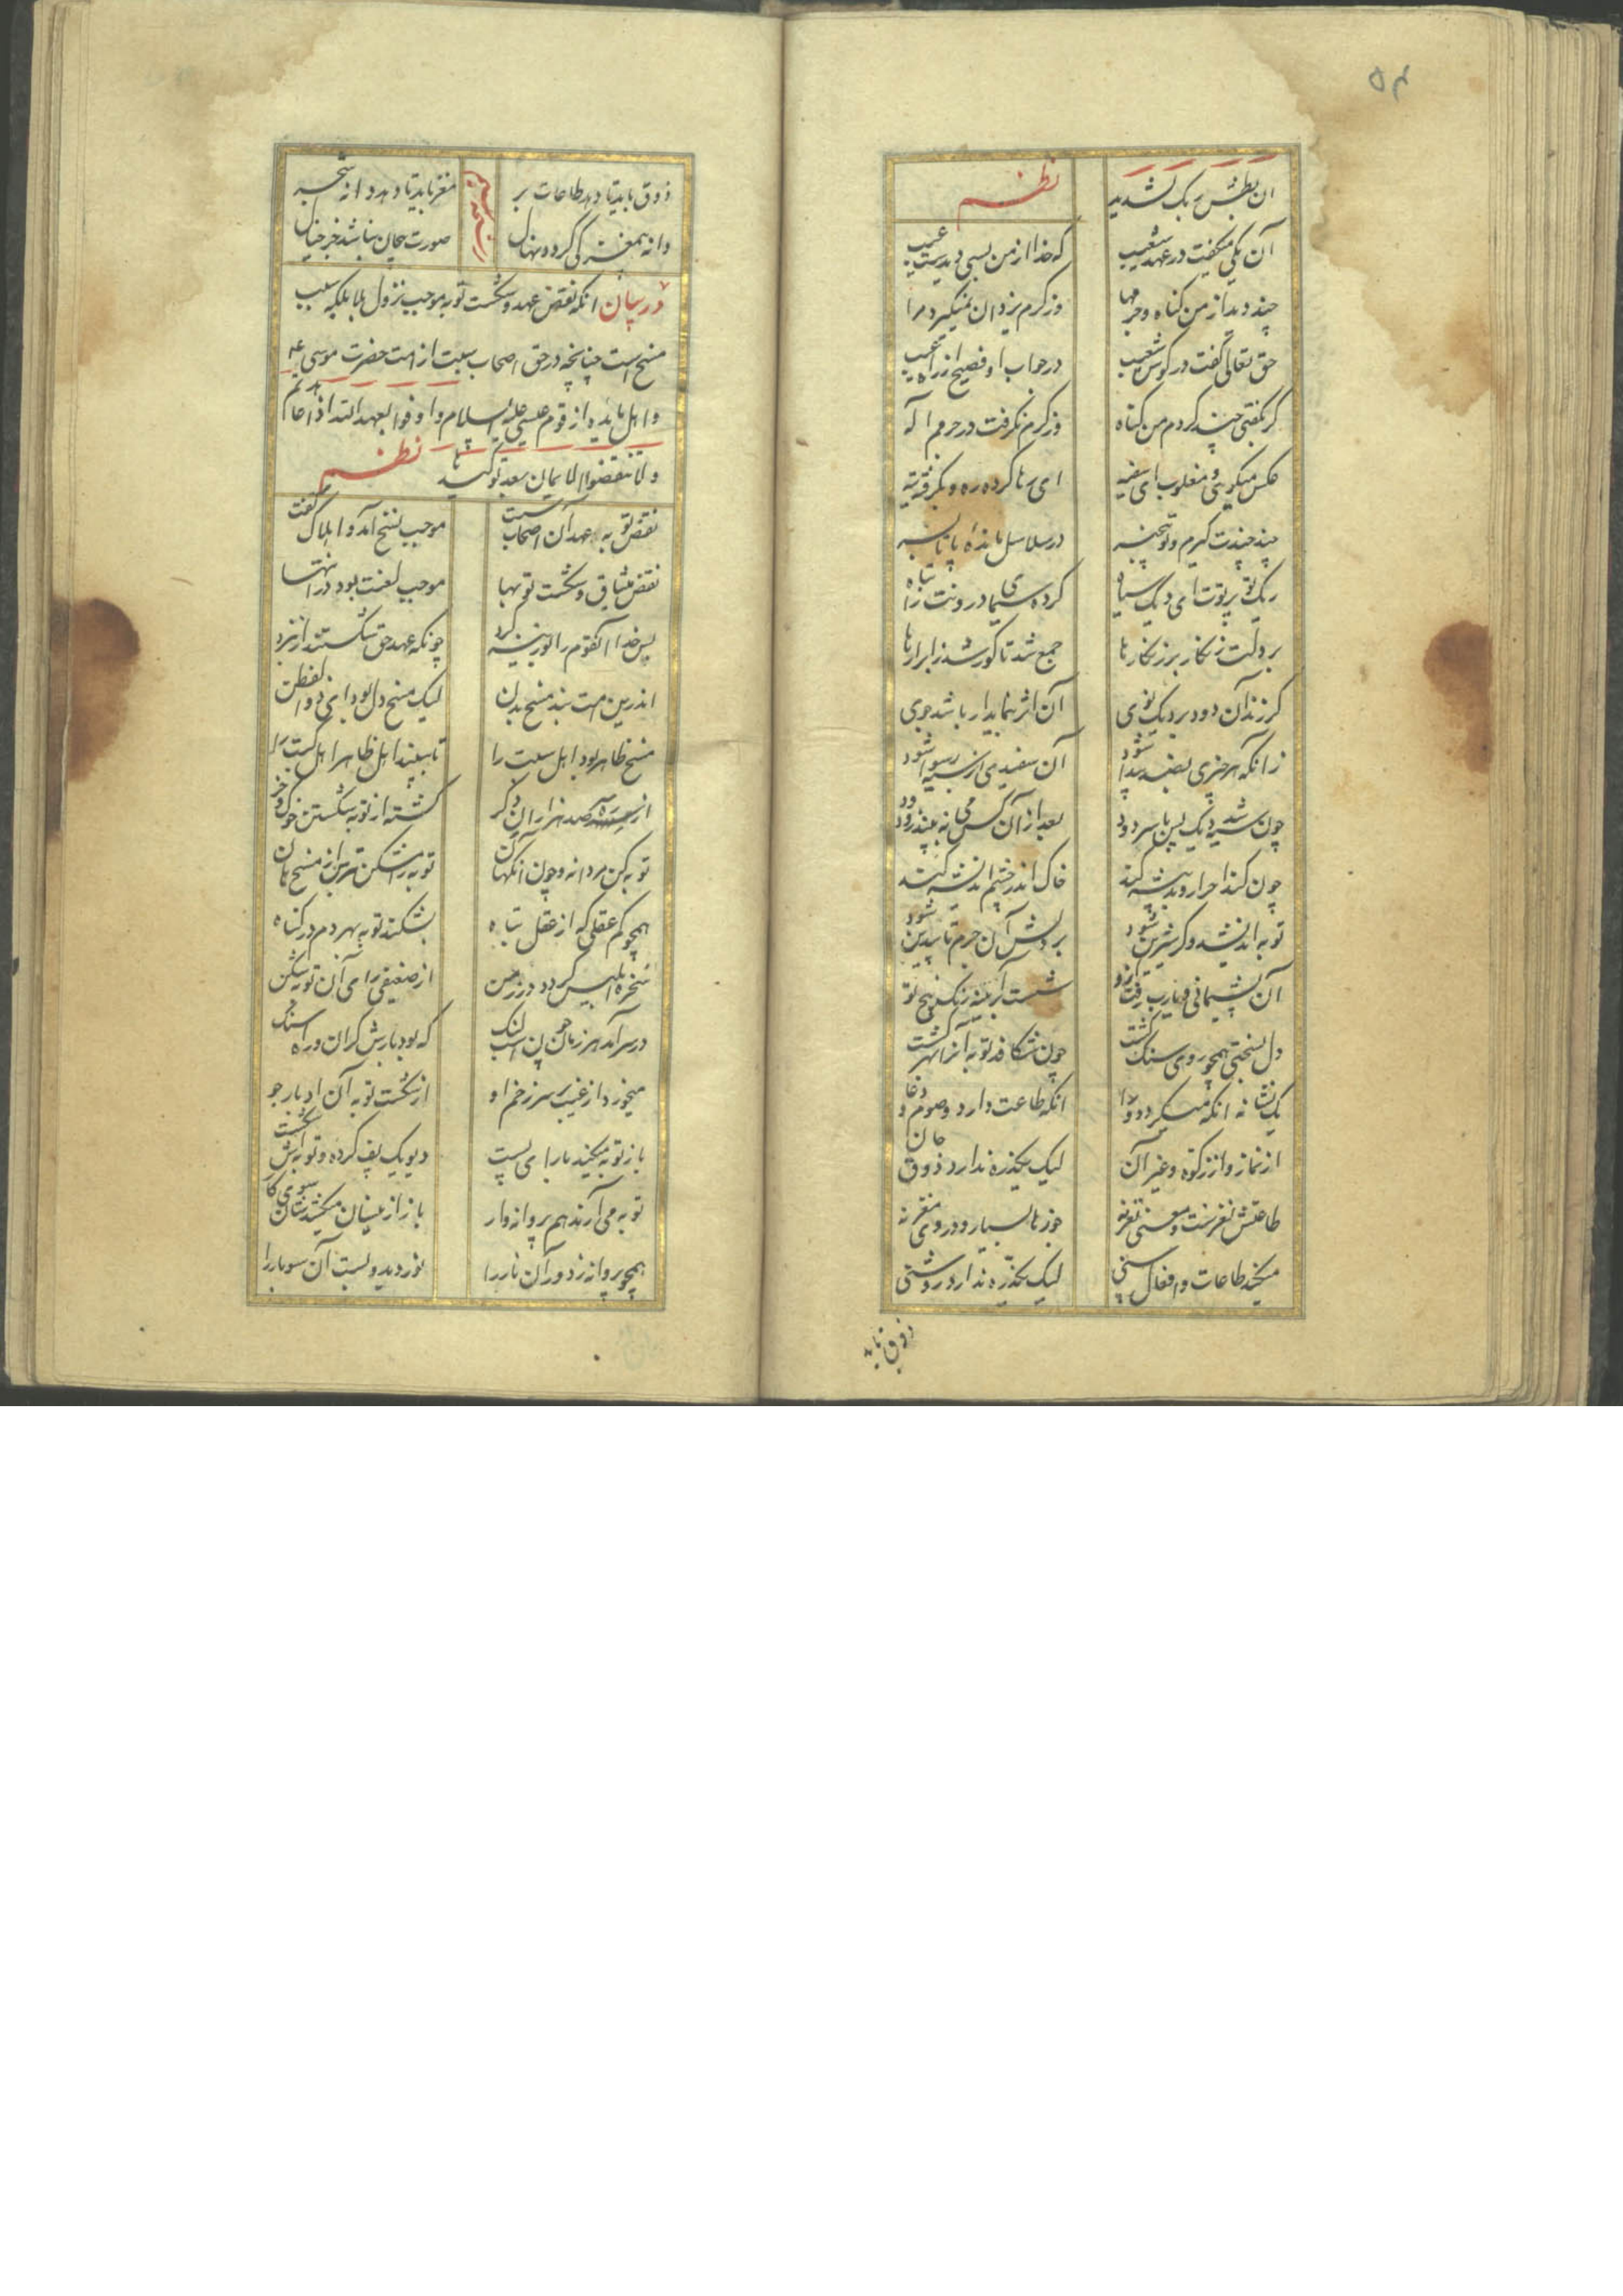 ۵۴
ان بطش ربک لشدید نظم
آن یکی میگفت در عهد شعیب که خدا از من بسی دیدست عیب
چند دید از من گناه و جرمها وز کرم یزدان نمیگیرد مرا
حق تعالی گفت در گوش شعیب در جواب او فصیح از راه غیب
که بگفتی چند کردم من گناه وز کرم نگرفت در جرمم اله
عکس میگویی و مغلوب ای سفیه ای رها کرده ره و بگرفته تیه
چند چندت گیرم و تو بیخبر در سلاسل مانده پا تا بسر
زنگ تو بر توت ای دیگ سیاه کرده سیمای درونت را تباه
بر دلت زنگار بر زنگارها جمع شد تا کور شد ز ابرارها
گر زند آن دود بر دیگ نوی آن اثر بنماید ار باشد جوی
زانکه هر چیزی بضد پیدا شود آن سفیدی از سیه رسوا شود
چون سیه شد دیگ پس تاثیر دود بعد از آن کس می نه بیند زود زود
چون کند اصرار و بد پیشه کند خاک اندر چشم اندیشه کند
توبه اندیشه و گر شیرین شود بر دلش آن جرم تا بیدین شود
آن پشیمانی و یارب رفت ازو شست بر آیینه زنگ پنج تو
دل بسختی همچو روی سنگ گشت چون شکافد توبه آنرا بهر گشت
یک نشانه انکه میگیرد ورا انکه طاعت دارد و صوم و دعا
از نماز و از زکوة و غیر آن لیک یکذره ندارد ذوق جان
طاعتش نغزست و معنی نغز نه جوزها بسیار و در وی مغز نه
میکند طاعات و افعال سنی لیک یکذره ندارد روشنی
ذوق باید
ذوق باید تا دهد طاعات بر مغز باید تا دهد دانه شجر
دانه بیمغز کی گردد نهال صورت بیجان نباشد جز خیال
در بیان انکه نقض عهد و شکست توبه موجب نزول بلا بلکه سبب
مسخ است چنانچه در حق اصحاب سبت از امت حضرت موسی ع
و اهل مایده از قوم عیسی علیه السلام و اوفوا بعهد الله اذا عاهدتم
ولا تنقضوا الایمان بعد توکیدها نظم
نقض توبه و عهد آن اصحاب سبت موجب مسخ آمد و اهلاک گفت
نقض میثاق و شکست توبها موجب لعنت بود در انتها
پس خدا آنقوم را بوزینه کرد چونکه عهد حق شکستند از نبرد
اندرین امت نبد مسخ بدن لیک مسخ دل بود ای ذوالفطن
مسخ ظاهر بود اهل سبت را تا ببیند اهل ظاهر اهل کبت را
از ره سر صد هزاران دگر گشته از توبه شکستن خوک و خر
توبه کن مردانه و چون انگهان توبه را مشکن بترس از مسخ هان
همچو کم عقلی که از عقل تباه بشکند توبه بهر دم در گناه
سخره ابلیس گردد در زمن از ضعیفی رای آن توبه شکن
در سر آید هر زمان چون اسب لنگ که بود بارش گران و راه سنگ
میخورد از غیب بر سر زخم او از شکست توبه آن ادبار جو
باز توبه میکند با رای پست دیو یک تف کرده و توبه اش شکست
توبه می آرند هم پروانه وار باز از نسیان میکشدشان سوی کار
همچو پروانه ز دور آن نار را نور دید و بست آن سو بار را